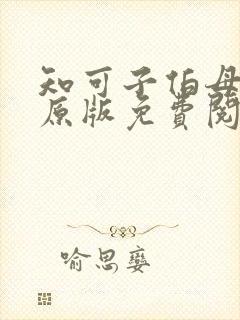 知可子伯母
原版免费阅
喻思孌